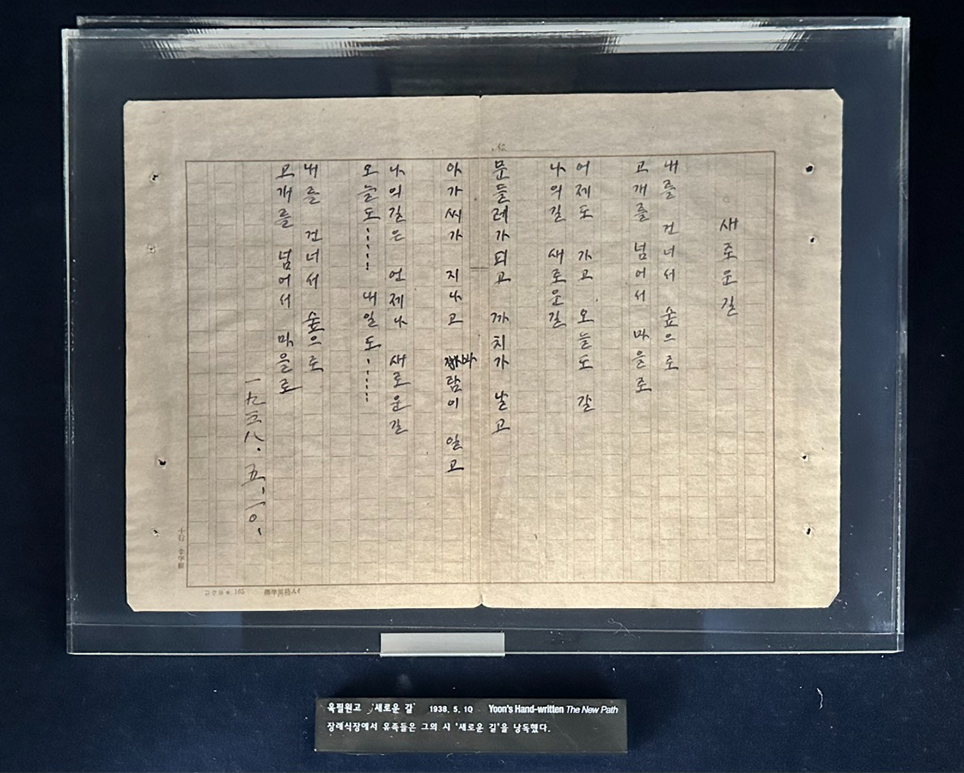 새로운길
내를 건너서 숲으로
고개를 넘어서 마을로
어제도 가고 오늘도 갈
나의길 새로운길
문들레가되고 까치가 날고
아가씨가 지나고 바람이 일고
나의길은 언제나 새로운길
오늘도…… 내일도……
내를 건너서 숲으로
고개를 넘어서 마을로
一九三八. 五, 一〇.
육필원고 '새로운 길' 1938. 5. 10 Yoon's Hand-written The New Path
장례식장에서 유족들은 그의 시 '새로운 길'을 낭독했다.